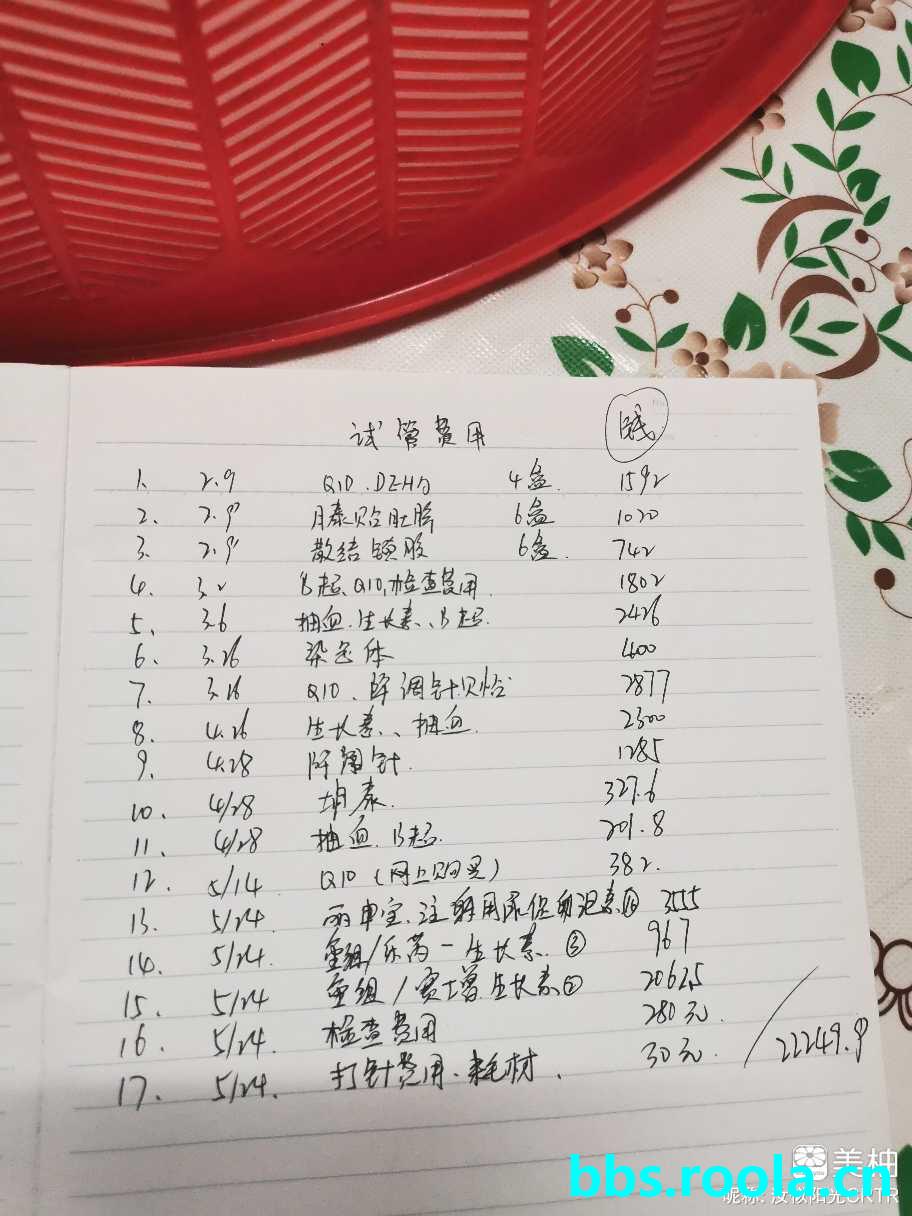 试管费用 钱
1. 2.9 Q10、DHEA 4盒. 1592
2. 2.9 6盒 1020
3. 2.9 散结镇 6盒. 742
4. 3.2 B超、Q10,检查费用. 1802
5. 3.6 抽血.生长素、、B超. 2426
6. 3.26 染色体 400
7. 3.26 Q10、降调针贝依 2877
8. 4.26 生长素、、抽血. 2300
9. 4.28 降调针. 1285
10. 4/28 . 327.6
11. 4/28 抽血、B超. 201.8
12. 5/14. Q10(网上购买) 382.
13. 5/24. 丽申宝、注射用尿促卵泡素⑩ 3555
14. 5/24. 重组/ 一生长素. ③ 967
15. 5/24 重组/赛增.生长素② 2062.5
16. 5/24. 检查费用 280元.
17. 5/24. 打针费用、耗材. 30元. / 22249.9
美柚
bbs.roola.cn
昵称: